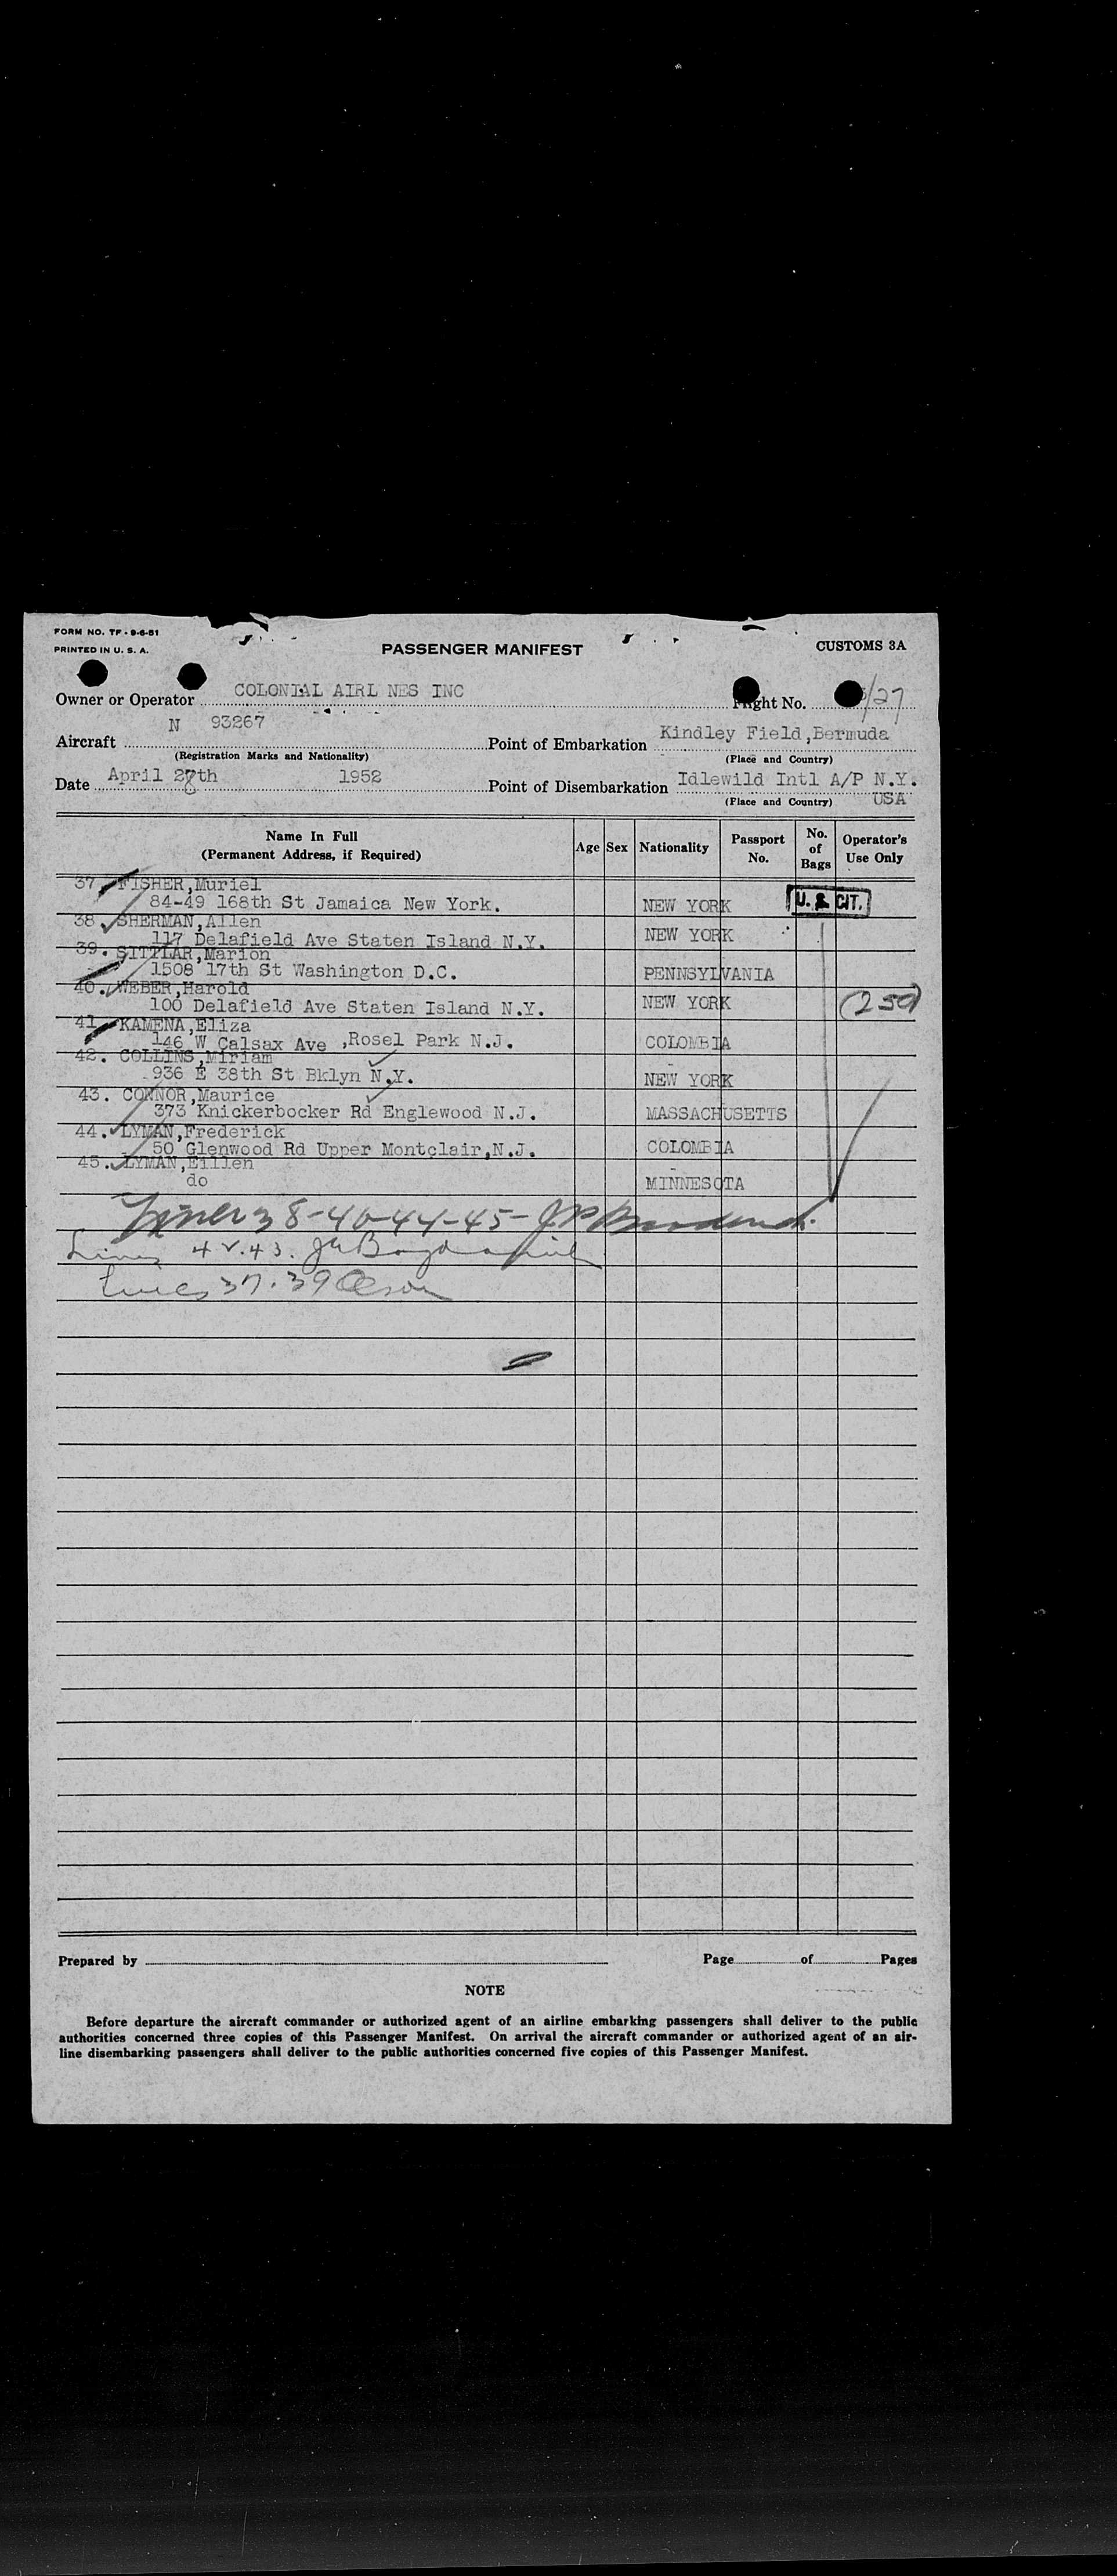 FORM NO. TF - 9-6-51
PRINTED IN U. S. A.
PASSENGER MANIFEST
CUSTOMS 3A
Owner or Operator COLONIAL AIRL NES INC
Flight No. /27
Aircraft N 93267
(Registration Marks and Nationality)
Point of Embarkation Kindley Field,Bermuda
(Place and Country)
Date April 27th 1952
Point of Disembarkation Idlewild Intl A/P N.Y.
(Place and Country) USA
Name In Full
(Permanent Address, if Required)
Age Sex Nationality Passport No. No. of Bags Operator's Use Only
37. FISHER,Muriel
84-49 168th St Jamaica New York. NEW YORK U. S. CIT.
38. SHERMAN,Allen
117 Delafield Ave Staten Island N.Y. NEW YORK
39. SITTLAR,Marion
1508 17th St Washington D.C. PENNSYLVANIA
40. WEBER,Harold
100 Delafield Ave Staten Island N.Y. NEW YORK (250)
41. KAMENA,Eliza
146 W Calsax Ave ,Rosel Park N.J. COLOMBIA
42. COLLINS,Miriam
936 E 38th St Bklyn N.Y. NEW YORK
43. CONNOR,Maurice
373 Knickerbocker Rd Englewood N.J. MASSACHUSETTS
44. LYMAN,Frederick
50 Glenwood Rd Upper Montclair,N.J. COLOMBIA
45. LYMAN,Eillen
do MINNESOTA
Lines 38-40-44-45-
Lines 42.43.
Lines 37.39 Olson
Prepared by
Page of Pages
NOTE
Before departure the aircraft commander or authorized agent of an airline embarking passengers shall deliver to the public
authorities concerned three copies of this Passenger Manifest. On arrival the aircraft commander or authorized agent of an air-
line disembarking passengers shall deliver to the public authorities concerned five copies of this Passenger Manifest.